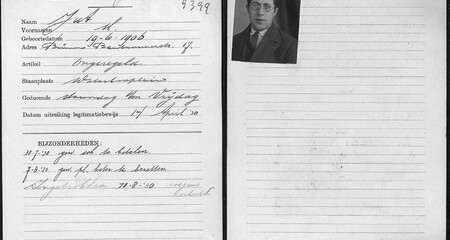 9399
Naam Jut
Voornamen M.
Geboortedatum 19-6-1906
Adres
Artikel Ongeregeld
Staanplaats Waterlooplein
Gedurende t/m Vrijdag
Datum uitreiking legitimatiebewijs 17 April '30
BIJZONDERHEDEN:
10-7-'30 gew. te betalen.
7-8-'30 gew. pl. beter te bezetten
Ingetrokken 18-8-'30 wegens